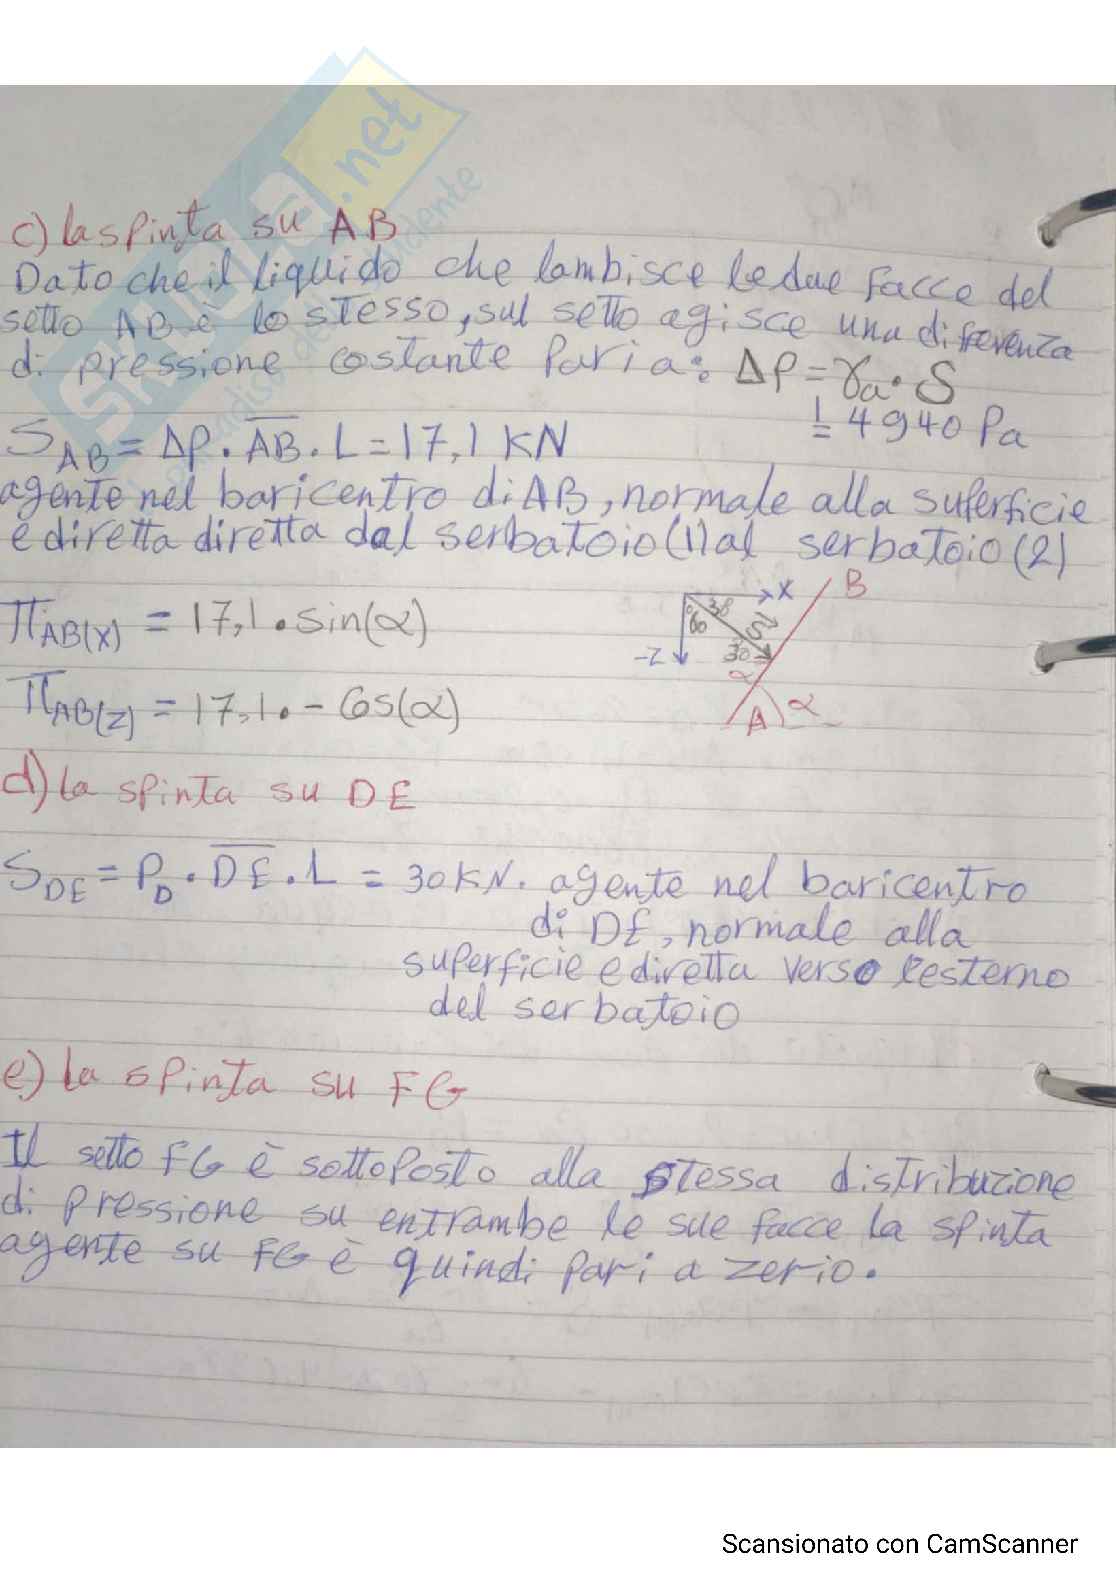 SKUOLA.net
c) la spinta su AB
Dato che il liquido che lambisce le due facce del
setto AB è lo stesso, sul setto agisce una differenza
di pressione costante pari a: ΔP = γa · δ
= 4940 Pa
S_AB = ΔP · A̅B̅ · L = 17,1 KN
agente nel baricentro di AB, normale alla superficie
e diretta diretta dal serbatoio (1) al serbatoio (2)
Π_AB(X) = 17,1 · sin(α)
Π_AB(Z) = 17,1 · - Cos(α)
X
B
60
30
S
-Z
30
α
A
α
d) la spinta su DE
S_DE = P_D · D̅E̅ · L = 30 KN. agente nel baricentro
di DE, normale alla
superficie e diretta verso l'esterno
del serbatoio
e) la spinta su FG
Il setto FG è sottoposto alla stessa distribuzione
di pressione su entrambe le sue facce la spinta
agente su FG è quindi pari a zerio.
Scansionato con CamScanner